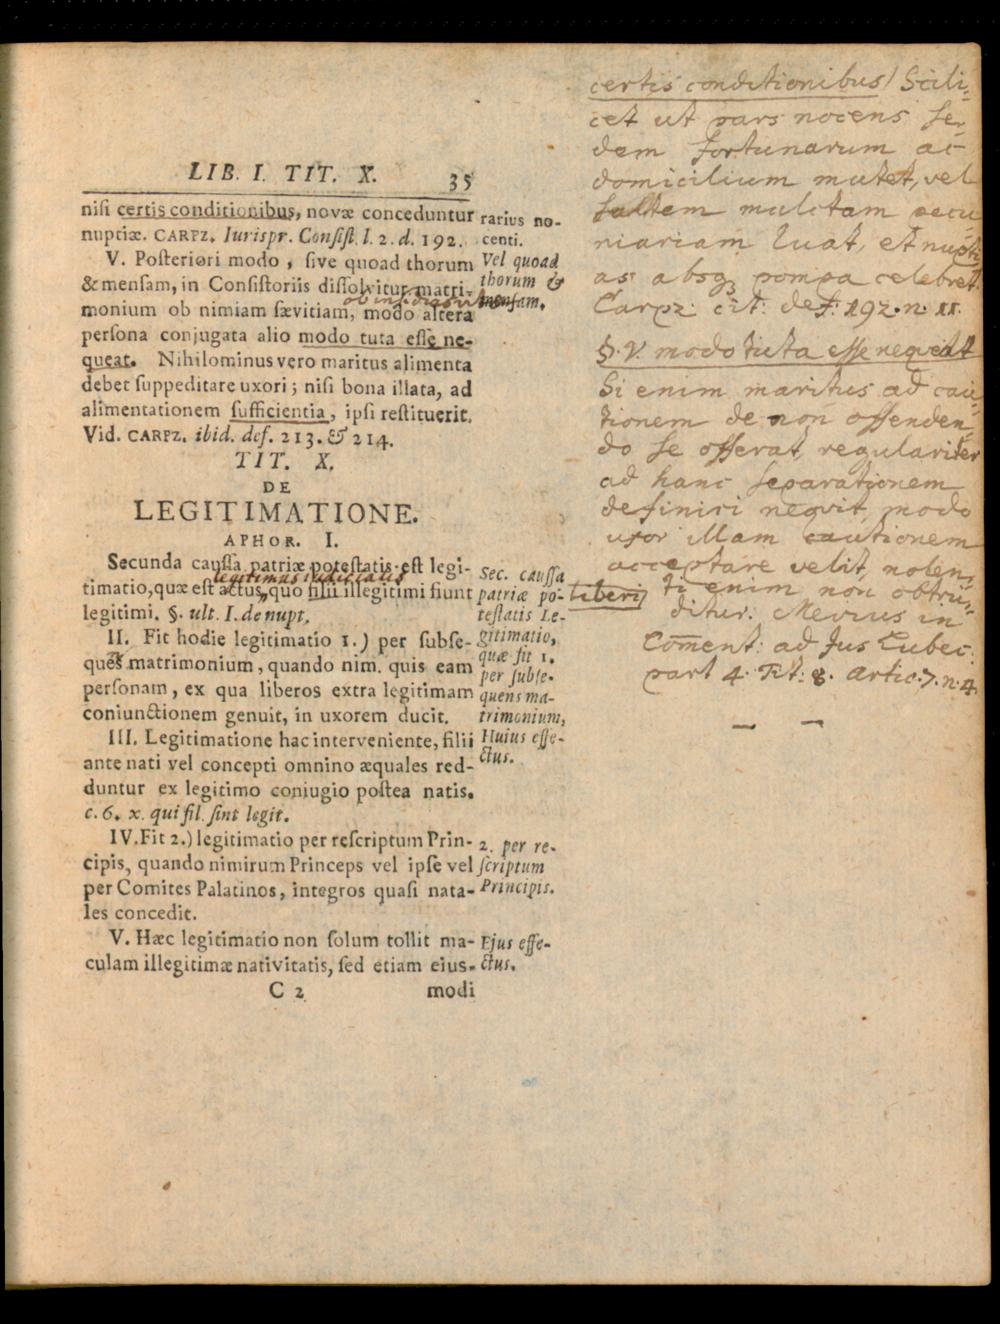 LIB. I. TIT. X. 35
niſi certis conditionibus, novæ conceduntur
nuptiæ. CARPZ. Iurispr. Conſiſt. l. 2. d. 192.
V. Poſteriori modo, ſive quoad thorum
& menſam, in Conſiſtoriis diſſolvitur matri-
ob insidias vitae
monium ob nimiam ſævitiam, modo altera
perſona conjugata alio modo tuta eſſe ne-
queat. Nihilominus vero maritus alimenta
debet ſuppeditare uxori; niſi bona illata, ad
alimentationem ſufficientia, ipſi reſtituerit.
Vid. CARPZ. ibid. def. 213. & 214.
TIT. X.
DE
LEGITIMATIONE.
APHOR. I.
Secunda cauſſa patriæ poteſtatis eſt legi-
legitimus iudicialis
timatio, quæ eſt actus, quo filii illegitimi fiunt
legitimi. §. ult. I. de nupt.
II. Fit hodie legitimatio 1.) per ſubſe-
ques matrimonium, quando nim. quis eam
perſonam, ex qua liberos extra legitimam
coniunctionem genuit, in uxorem ducit.
III. Legitimatione hac interveniente, filii
ante nati vel concepti omnino æquales red-
duntur ex legitimo coniugio poſtea natis.
c. 6. x. qui fil. ſint legit.
IV. Fit 2.) legitimatio per reſcriptum Prin-
cipis, quando nimirum Princeps vel ipſe vel
per Comites Palatinos, integros quaſi nata-
les concedit.
V. Hæc legitimatio non ſolum tollit ma-
culam illegitimæ nativitatis, ſed etiam eius-
C 2 modi
rarius no-
centi.
Vel quoad
thorum &
menſam.
Sec. cauſſa
patriæ po-
teſtatis Le-
gitimatio,
quæ fit 1.
per ſubſe-
quens ma-
trimonium,
Huius effe-
ctus.
2. per re-
ſcriptum
Principis.
Ejus effe-
ctus.
certis conditionibus) Scili-
cet ut pars nocens se-
dem fortunarum ac
domicilium mutet, vel
saltem mulctam pecu
niariam luat, et nupti
as absq pompa celebret.
Carpz: cit: def: 192. n. 11.
§. V. modo tuta esse nequeat
Si enim maritus ad cau-
tionem de non offenden-
do se offerat, regulariter
ad hanc separationem
definiri nequit, modo
uxor illam cautionem
acceptare velit, nolen-
ti enim non obtru-
liberi)
ditur. Mevius in
Com̄ent: ad Jus Lubec:
part 4. Tit: 8. artic. 7. n. 4.